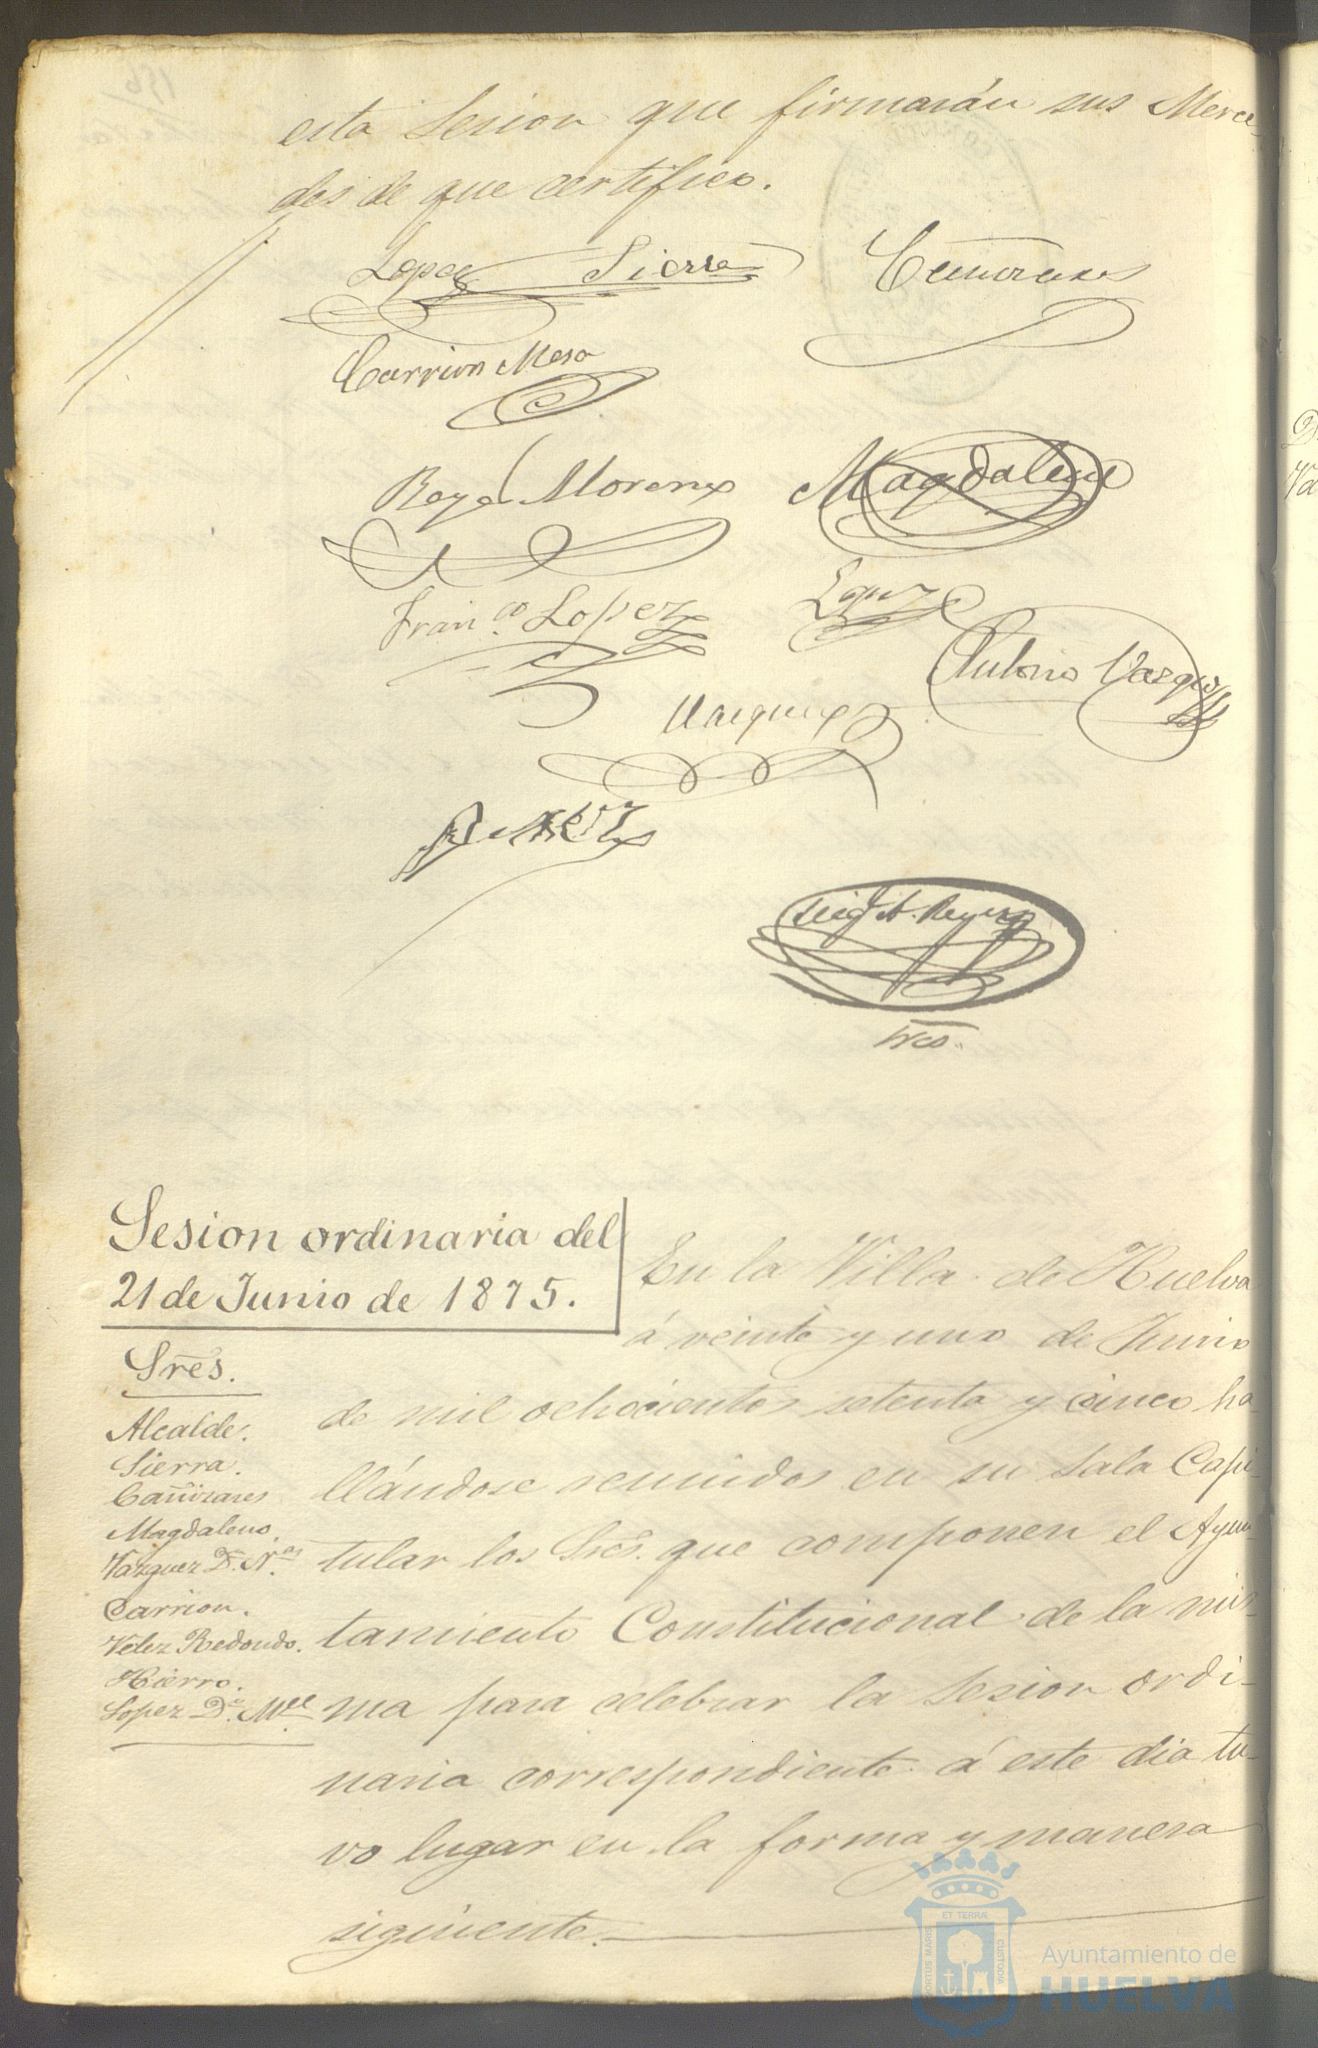 esta Sesion que firmarán sus Merce-
des de que certifico.
Lopez Sierra Cañizares
Carrion Mesa
Moreno Magdaleno
Fran.co Lopez Lopez
Antonio Vazquez
Vazquez
Srio.
Sesion ordinaria del
21 de Junio de 1875.
Sres.
Alcalde.
Sierra.
Cañizares
Magdaleno.
Vazquez Dn. N.as
Carrion.
Velez Redondo.
Hierro.
Lopez Dn. M.el
En la Villa de Huelva
á veinte y uno de Junio
de mil ochocientos setenta y cinco ha-
llándose reunidos en su Sala Capi-
tular los Sres. que componen el Ayun-
tamiento Constitucional de la mis-
ma para celebrar la Sesion ordi-
naria correspondiente á este dia tu-
vo lugar en la forma y manera
siguiente.
PORTUS MARIS
ET TERRÆ
CUSTODIA
Ayuntamiento de
HUELVA